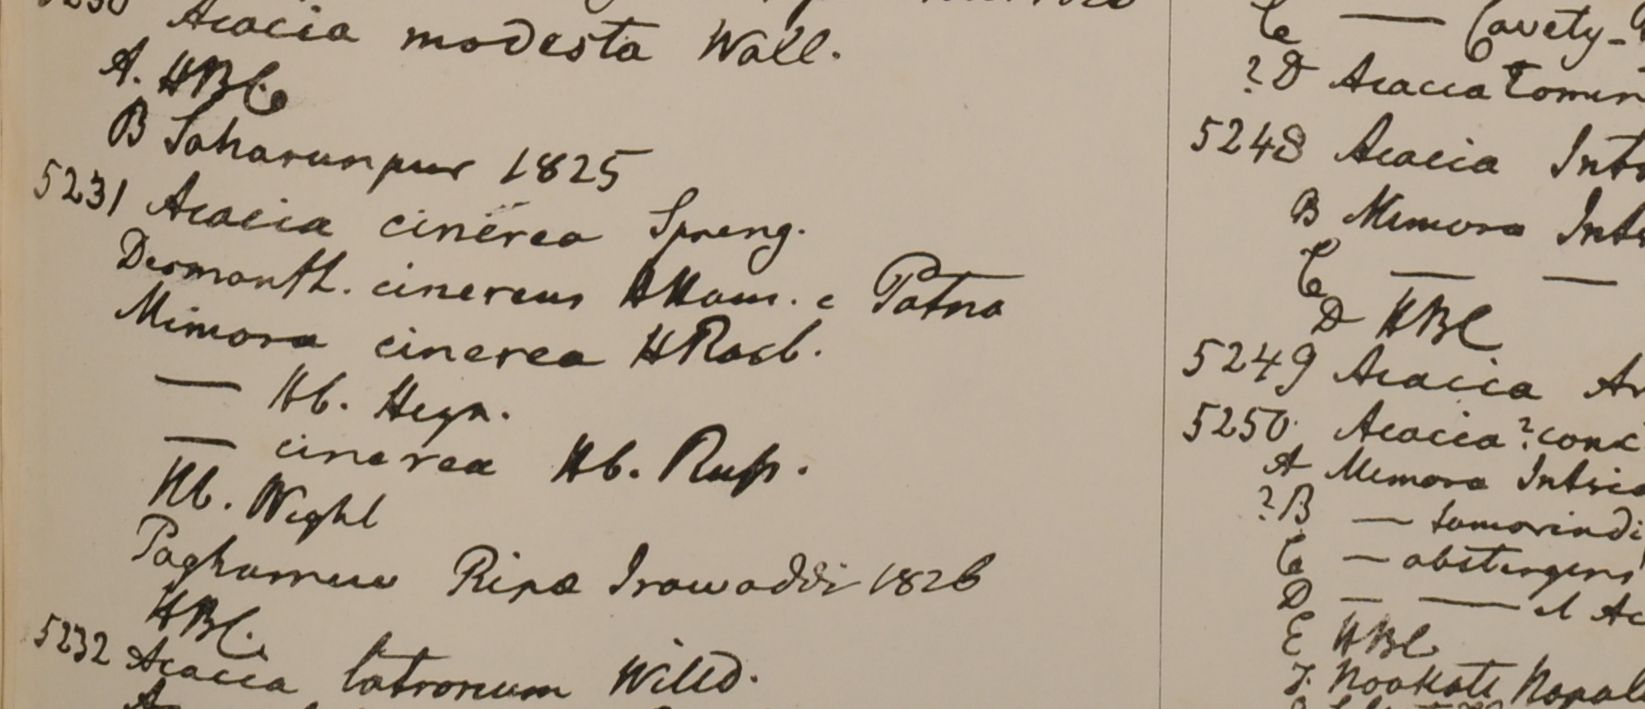 5230
Acacia modesta Wall.
A. HBC
B Saharunpur 1825
5231 Acacia cinerea Spreng.
Desmanth. cinereus HHam. e Patna
Mimosa cinerea HRoxb.
— Hb. Heyn.
— cinerea Hb. Russ.
Hb. Wight
Paghamew Ripa Irawaddi 1826
HBC.
5232 Acacia latronum Willd.
A
C —
? D Acacia Tomen
5248 Acacia Int
B Mimosa Int
C — —
D HBC
5249 Acacia Ar
5250 Acacia? conc
A Mimosa Intsia
? B — tamarindi
C — abstergens
D — —
E HBC